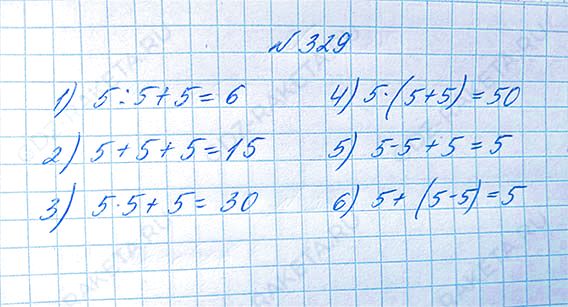 № 329
1) 5:5+5=6
4) 5·(5+5)=50
2) 5+5+5=15
5) 5-5+5=5
3) 5·5+5=30
6) 5+(5-5)=5